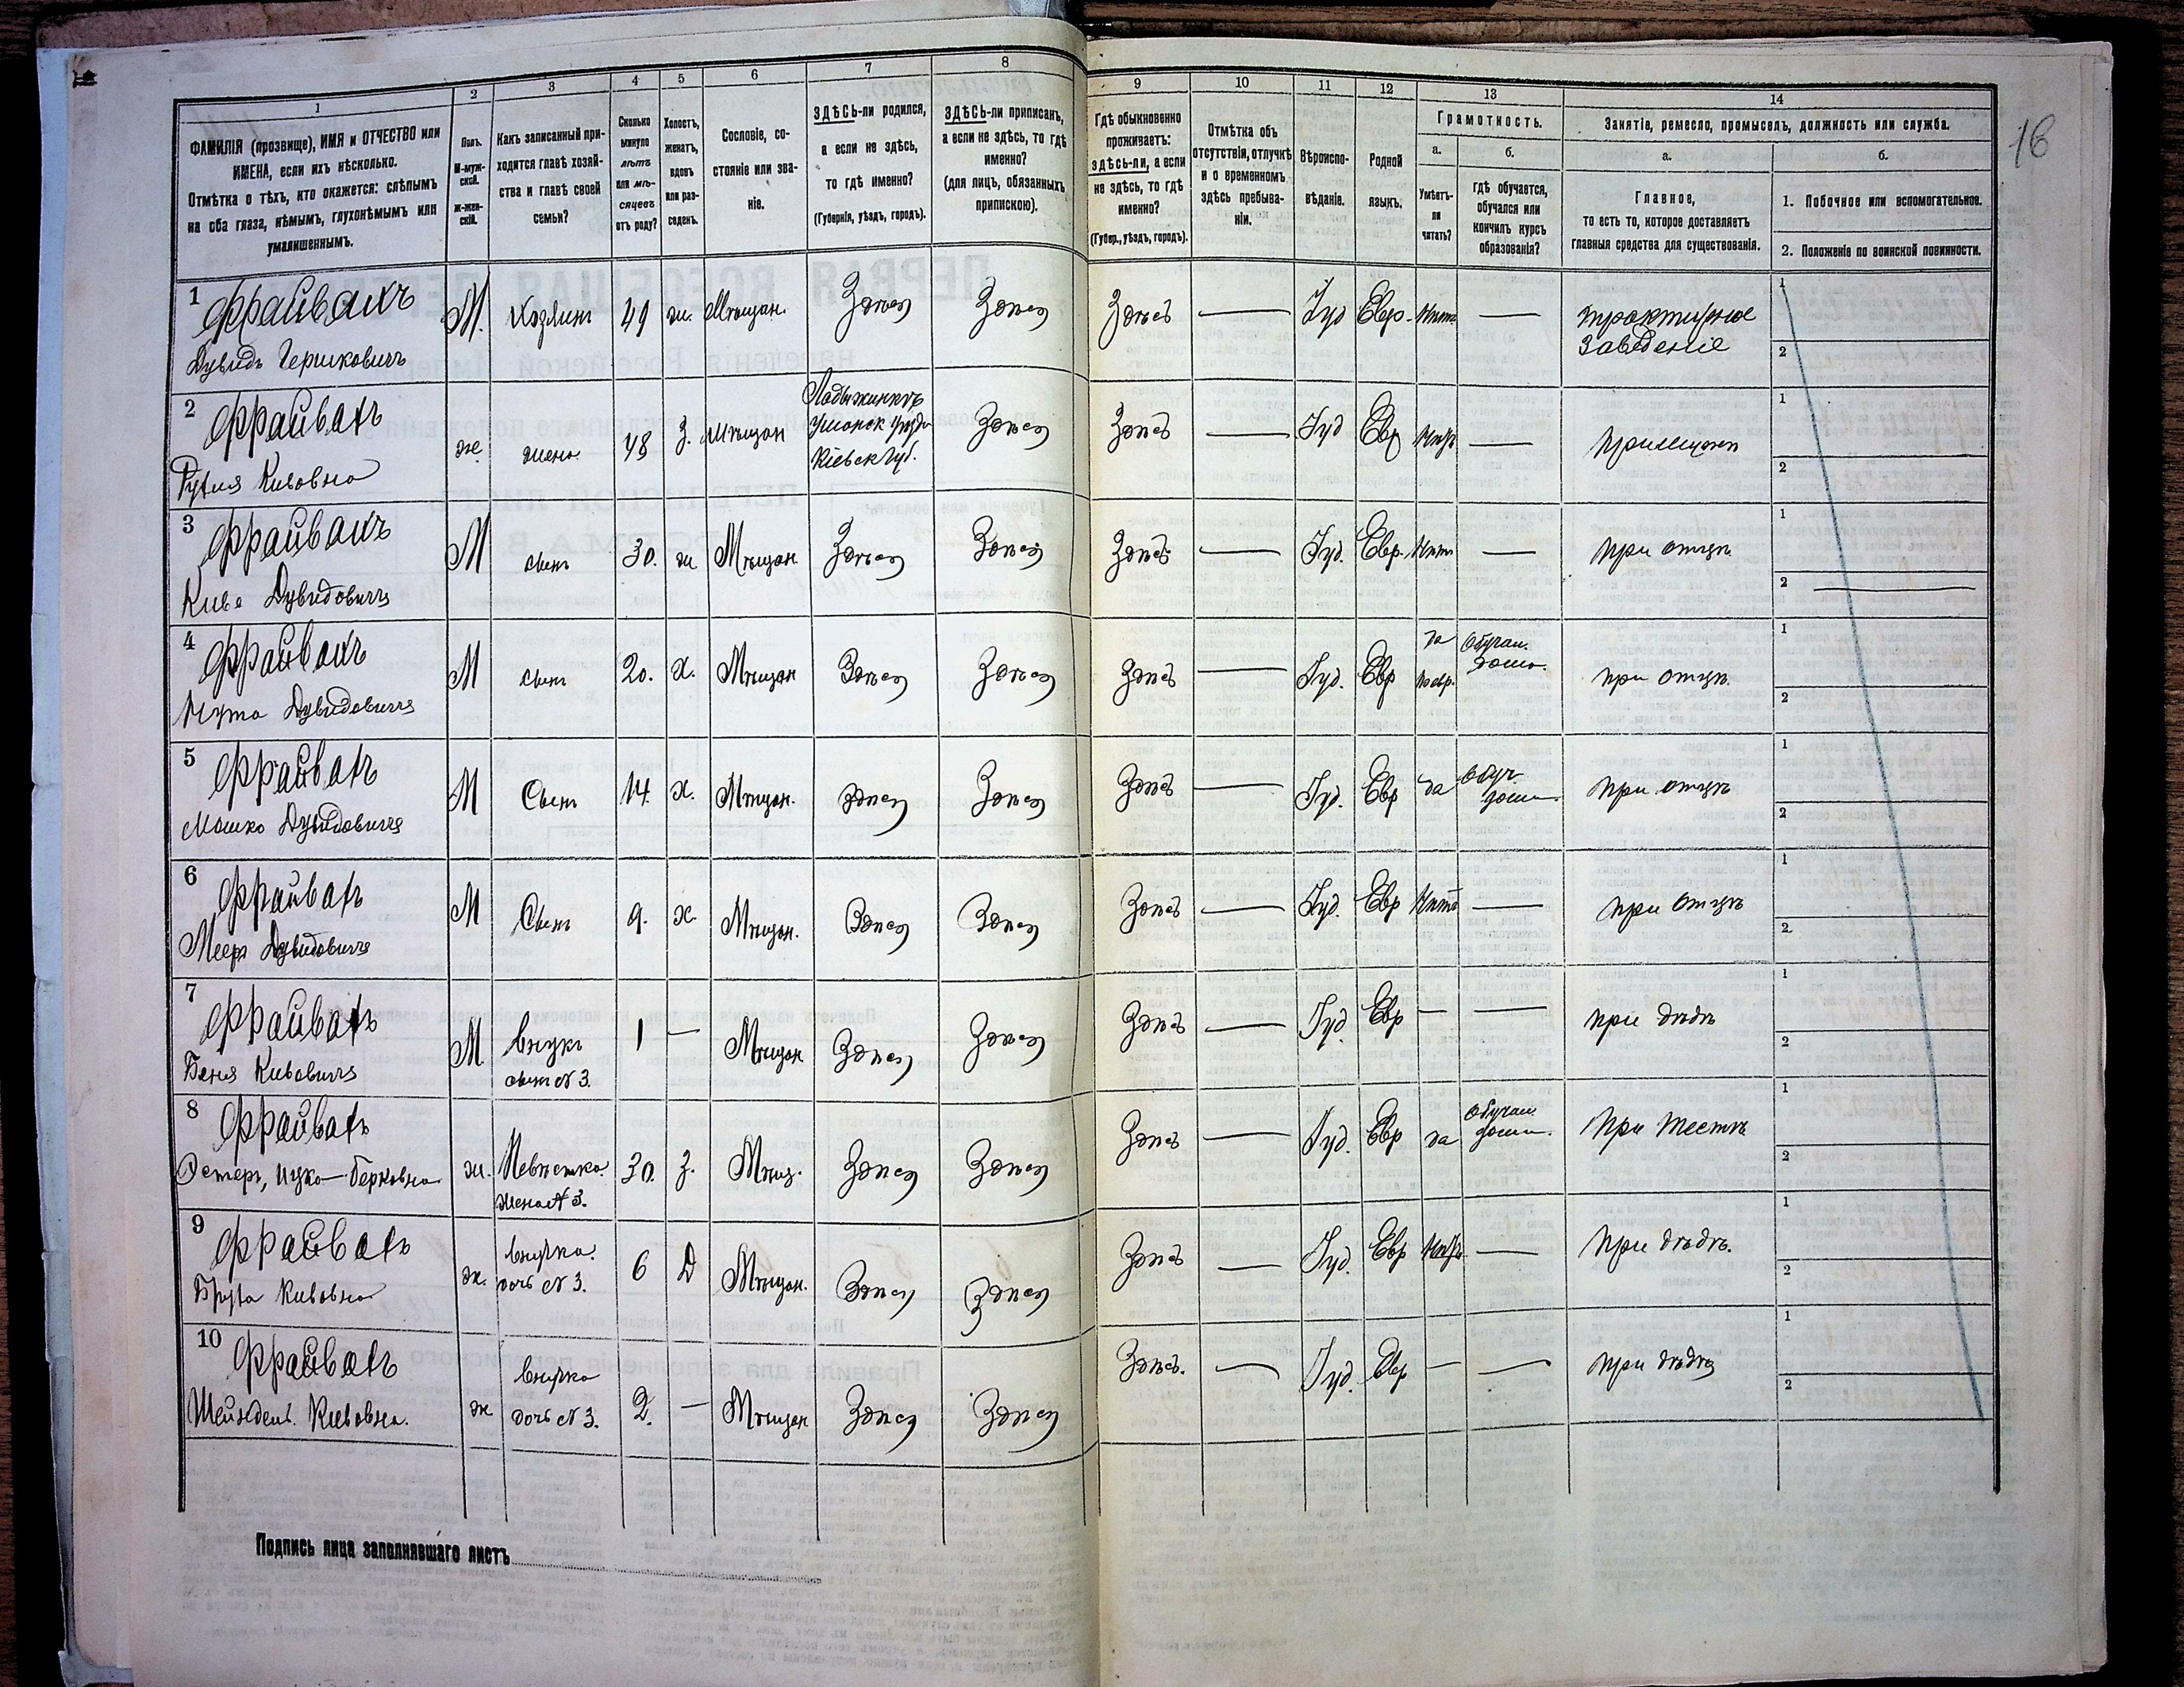 1 2 3 4 5 6 7 8 9 10 11 12 13 14
ФАМИЛІЯ (прозвище), ИМЯ и ОТЧЕСТВО или
ИМЕНА, если ихъ нѣсколько.
Отмѣтка о тѣхъ, кто окажется: слѣпымъ
на оба глаза, нѣмымъ, глухонѣмымъ или
умалишеннымъ.
Полъ.
М-муж-
ской.
ж-жен-
скій.
Какъ записанный при-
ходится главѣ хозяй-
ства и главѣ своей
семьи?
Сколько
минуло
лѣтъ
или мѣ-
сяцевъ
отъ роду?
Холостъ,
женатъ,
вдовъ
или раз-
веденъ.
Сословіе, со-
стояніе или зва-
ніе.
ЗДѢСЬ-ли родился,
а если не здѣсь,
то гдѣ именно?
(Губернія, уѣздъ, городъ).
ЗДѢСЬ-ли приписанъ,
а если не здѣсь, то гдѣ
именно?
(для лицъ, обязанныхъ
припискою).
Гдѣ обыкновенно
проживаетъ:
здѣсь-ли, а если
не здѣсь, то гдѣ
именно?
(Губер., уѣздъ, городъ).
Отмѣтка объ
отсутствіи, отлучкѣ
и о временномъ
здѣсь пребыва-
ніи.
Вѣроиспо-
вѣданіе.
Родной
языкъ.
Грамотность.
а.
Умѣетъ-
ли
читать?
б.
гдѣ обучается,
обучался или
кончилъ курсъ
образованія?
Занятіе, ремесло, промыселъ, должность или служба.
а.
Главное,
то есть то, которое доставляетъ
главныя средства для существованія.
б.
1. Побочное или вспомогательное.
2. Положеніе по воинской повинности.
16
1 Фрайвахъ М. Хозяинъ 49 ж. Мѣщан. Здѣсь Здѣсь Здѣсь — Іуд Евр. Нѣтъ — трактирное 1
Дувидъ Гершковичъ заведеніе 2
2 Фрайвахъ ж. жена 48 З. Мѣщан Уманск уѣзда Здѣсь Здѣсь — Іуд Евр Нѣтъ — 1
Кивовна Кіевск губ. 2
3 Фрайвахъ М сынъ 30. ж Мѣщан. Здѣсь Здѣсь Здѣсь — Іуд. Евр. Нѣтъ — при отцѣ 1
Кива Дувидовичъ 2
4 Фрайвахъ М сынъ 20. х. Мѣщан Здѣсь Здѣсь Здѣсь — Іуд. Евр да обучал. при отцѣ 1
Дувидовичъ по евр. дома. 2
5 Фрайвахъ М Сынъ 14. х. Мѣщан. Здѣсь Здѣсь Здѣсь — Іуд. Евр да обуч при отцѣ 1
Мошко Дувидовичъ дома 2
6 Фрайвахъ М Сынъ 9. х. Мѣщан. Здѣсь Здѣсь Здѣсь — Іуд. Евр Нѣтъ — при отцѣ 1
Меер Дувидовичъ 2
7 Фрайвахъ М внукъ 1 — Мѣщан Здѣсь Здѣсь Здѣсь — Іуд Евр — — при дѣдѣ 1
Беня Кивовичъ сынъ N 3. 2
8 Фрайвахъ ж. Невѣстка 30. З. Мѣщ. Здѣсь Здѣсь Здѣсь — Іуд. Евр да обучал. При тестѣ 1
Эстеръ, Ицко-Берковна жена N 3. дома. 2
9 Фрайвахъ ж. внучка. 6 Д Мѣщан. Здѣсь Здѣсь Здѣсь — Іуд. Евр Нѣтъ — При дѣдѣ. 1
Кивовна дочь N 3. 2
10 Фрайвахъ ж внучка 2. — Мѣщан Здѣсь Здѣсь Здѣсь. — Іуд. Евр — — при дѣдѣ 1
Шейндель Кивовна. дочь N 3. 2
Подпись лица заполнявшаго листъ